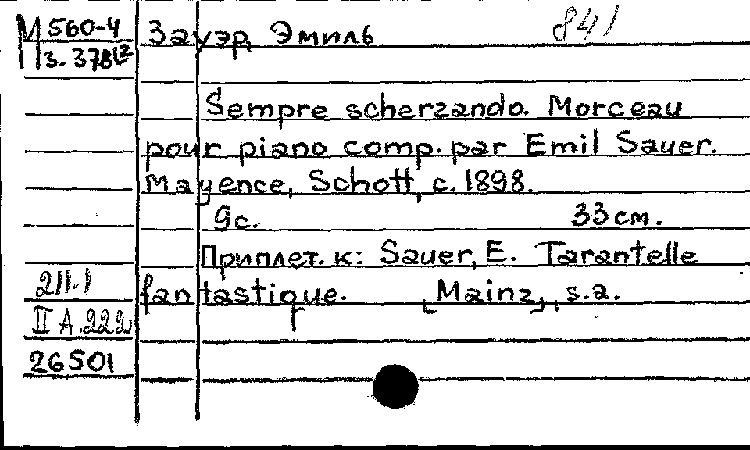 М 560-4
З. 378
Зауэр, Эмиль
841
Sempre scherzando. Morceau
pour piano comp. par Emil Sauer.
Mayence, Schott, c. 1898.
9с. 33см.
Приплет. к: Sauer, E. Tarantelle
fantastique. [Mainz], s.a.
211.1
II A.222
26501